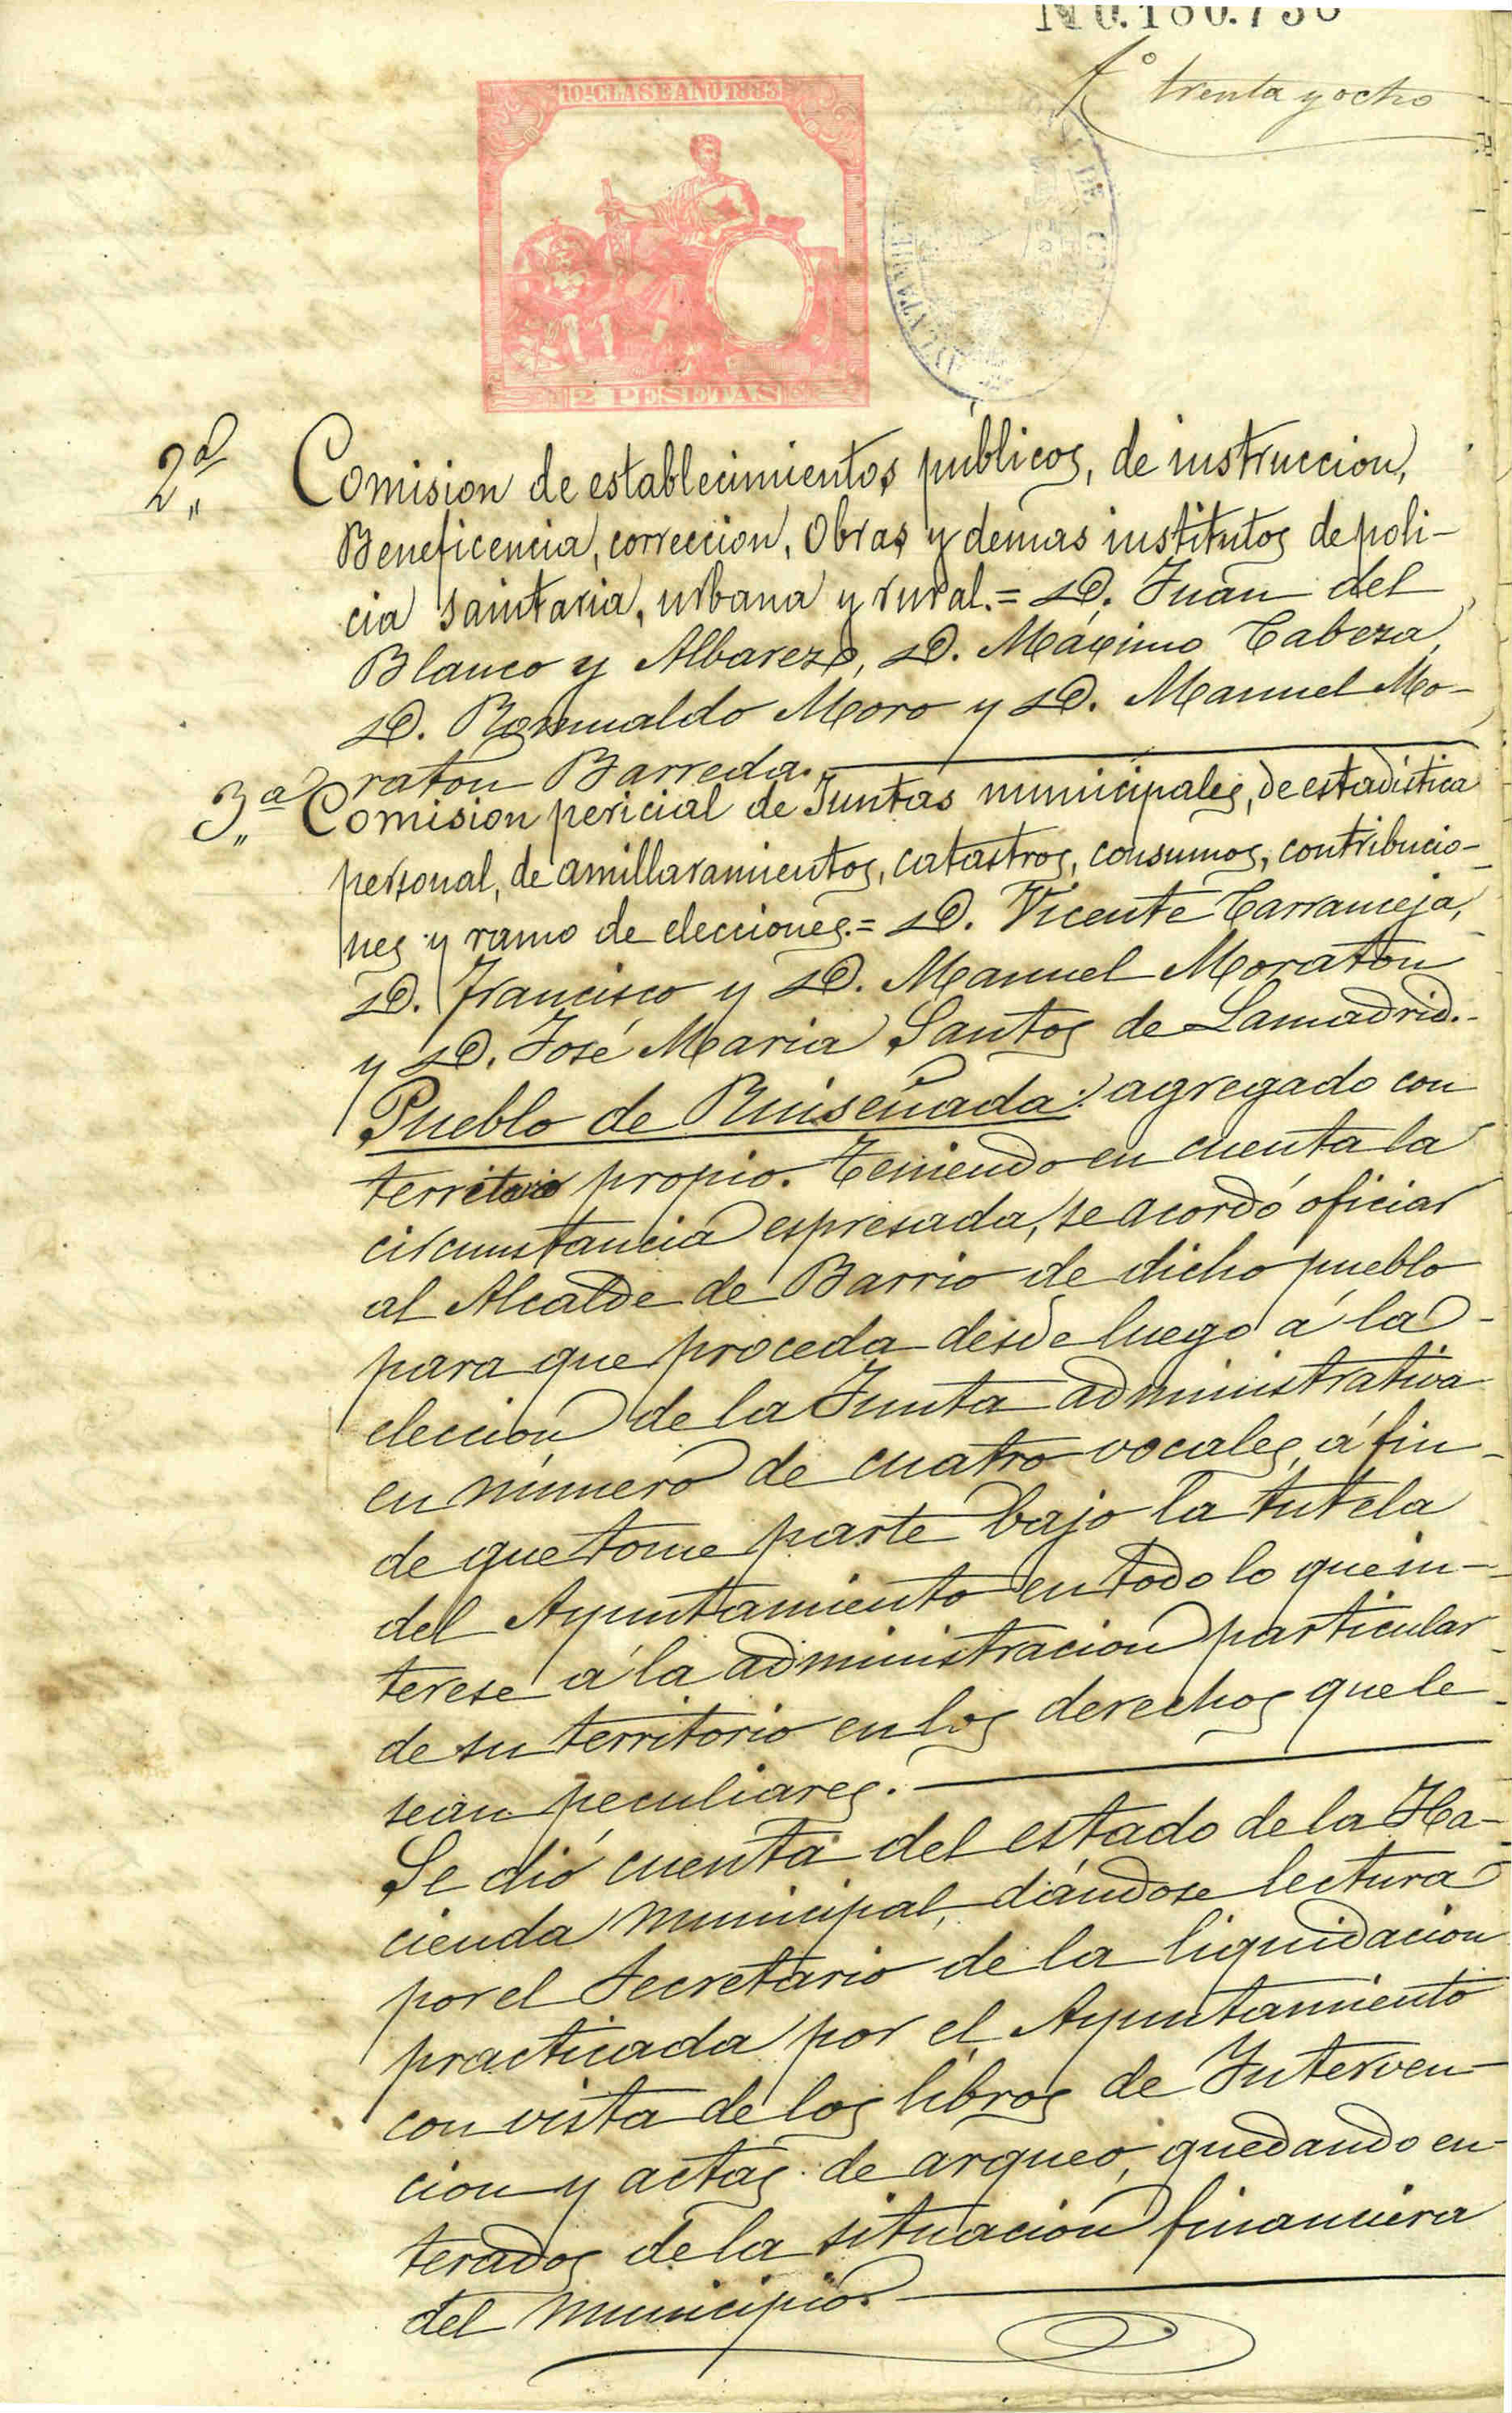 N 0.180.730
fº trenta y ocho
10ª CLASE AÑO 1883
2 PESETAS
2ª Comision de establecimientos públicos, de instruccion,
Beneficencia, correccion, Obras y demas institutos de poli-
cia sanitaria, urbana y rural.= D. Juan del
Blanco y Albarez, D. Máximo Cabeza,
D. Romualdo Moro y D. Manuel Mo-
raton Barreda.
3ª Comision pericial de Juntas municipales, de estadistica
personal, de amillaramientos, catastros, consumos, contribucio-
nes y ramo de elecciones.= D. Vicente Carranceja,
D. Francisco y D. Manuel Moraton
y D. José Maria Santos de Lamadrid.-
Pueblo de Ruiseñada: agregado con
territorio propio. Teniendo en cuenta la
circunstancia espresada, se acordó oficiar
al Alcalde de Barrio de dicho pueblo
para que proceda desde luego á la
eleccion de la Junta administrativa
en número de cuatro vocales, á fin
de que tome parte bajo la tutela
del Ayuntamiento en todo lo que in-
terese á la administracion particular
de su territorio en los derechos que le
sean peculiares.
Se dió cuenta del estado de la Ha-
cienda municipal, dándose lectura
por el Secretario de la liquidacion
practicada por el Ayuntamiento
con vista de los libros de Interven-
cion y actas de arqueo, quedando en-
terados de la situacion financiera
del municipio.